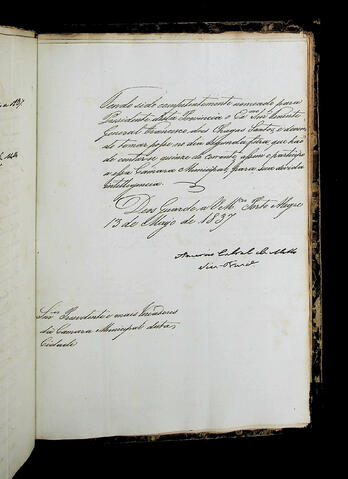 Tendo sido competentemente nomeado para
Presidente desta Provincia o Ex.mo Snr. Tenente
General Francisco das Chagas Santos, e devendo
tomar posse no dia Segunda feira, que hão
de contar-se quinze do corrente, assim o participo
a essa Camara Municipal para sua devida
intelligencia.
Deos Guarde a V. M.ces Porto Alegre
13 de Mayo de 1837
Americo Cabral de Mello
Vice-Presid.e
Snr.es Presidente e mais Vereadores
da Camara Municipal desta
Cidade
1837